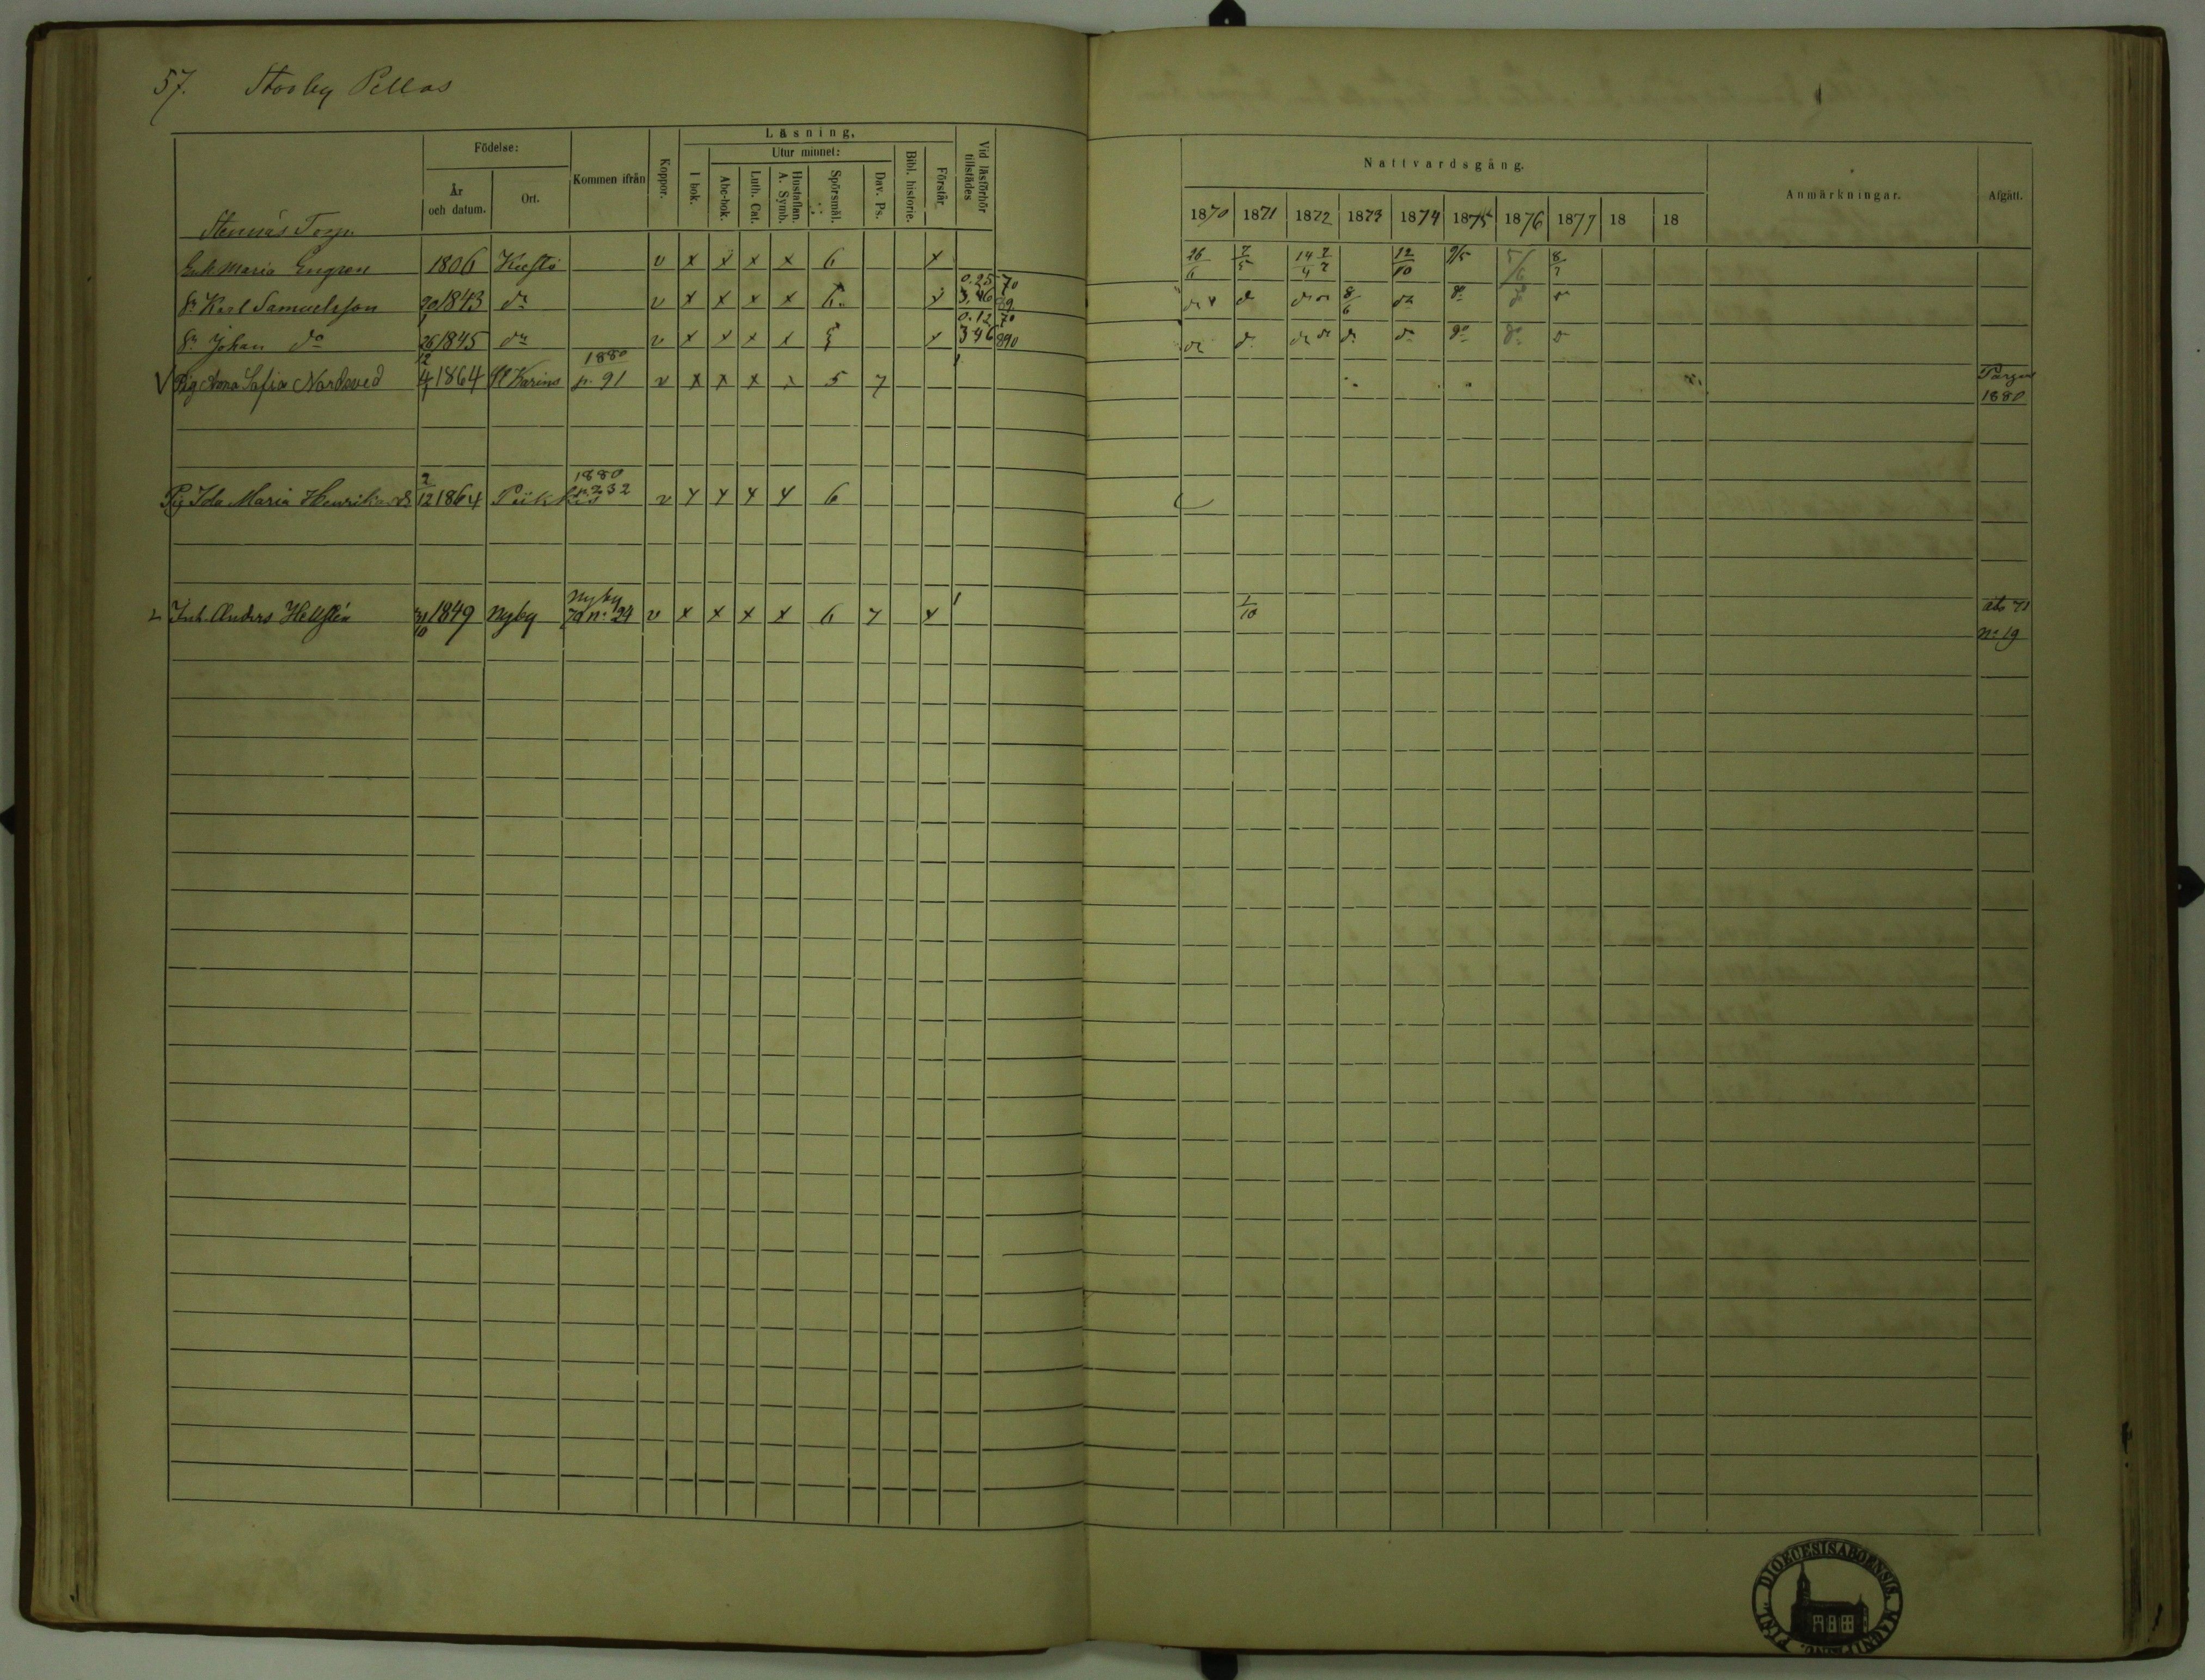 57. Storby Pellas
Födelse:
År och datum.
Ort.
Kommen ifrån
Koppor.
Läsning.
I bok.
Utur minnet:
Abc-bok.
Luth. Cat.
Hustaflan. A. Symb.
Spörsmål.
Dav. Ps.
Bibl. historie.
Förstår.
Vid läsförhör tillstädes
Nattvardsgång.
1870 1871 1872 1873 1874 1875 1876 1877 18 18
Anmärkningar.
Afgått.
Stennäs Torp.
Enk. Maria Engren 1806 Kustö v x x x x 6 x 26/6 7/5 12/10 9/5 5/6 8/7
Sn Karl Samuelsson 20 1843 do v x x x x 6 x 0.25 70 3,46 89 8/6
Sn Johan do 26/12 1845 do v x x x x x 0.12 70 346 890
Pig Anna Sofia Nordsved 4/4 1864 St Karins 1880 p. 91 v x x x x 5 7 Pargas 1880
Pig Ida Maria Henriksdr 2/12 1864 Piikkis 1880 232 v x x x x 6
Inh. Anders Hellsten 31/10 1849 Nyby Nyby 70 no 24 v x x x x 6 7 x 1 1/10 71 No 19
SIGIL. DIOECESIS ABOENSIS